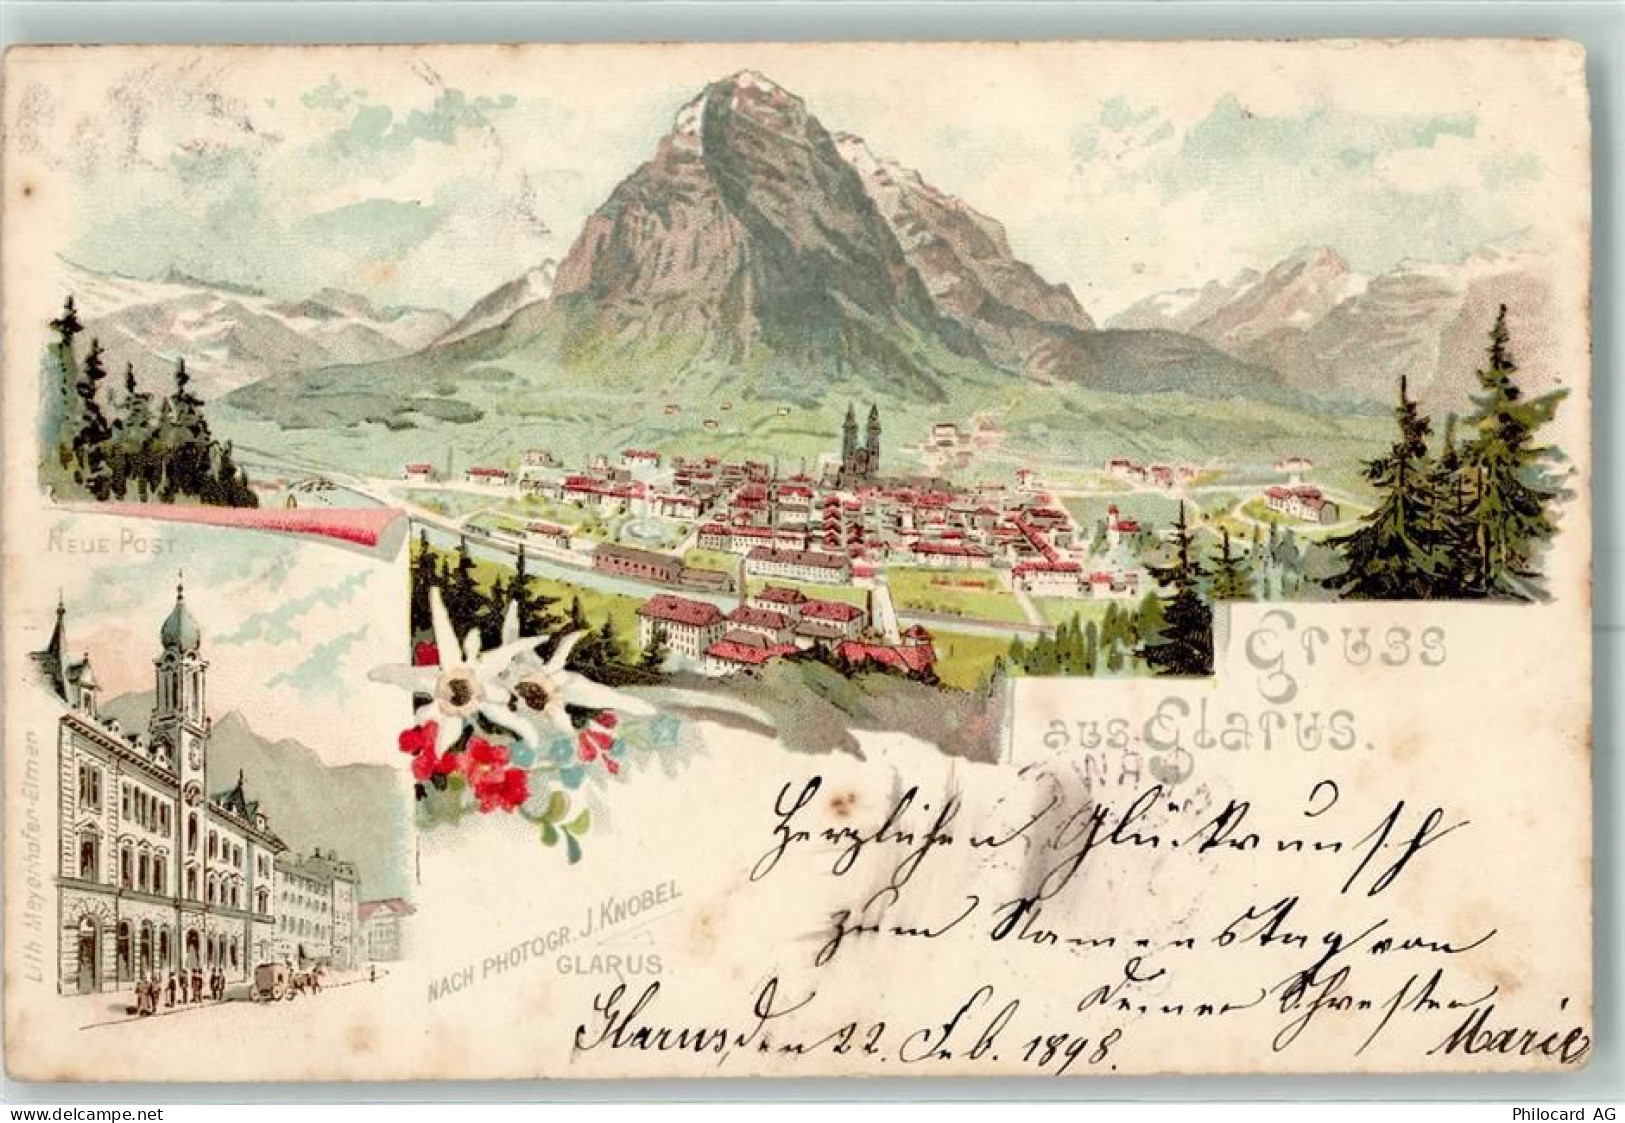 Neue Post
Gruss
aus Glarus.
Lith. Meyenhofer-Elmer
NACH PHOTOGR. J. KNOBEL
GLARUS
Herzlichen Glückwunsch
zum Namenstag von
Deiner Schwester
Glarus, den 22. Feb. 1898.
Marie
www.delcampe.net
Philocard AG